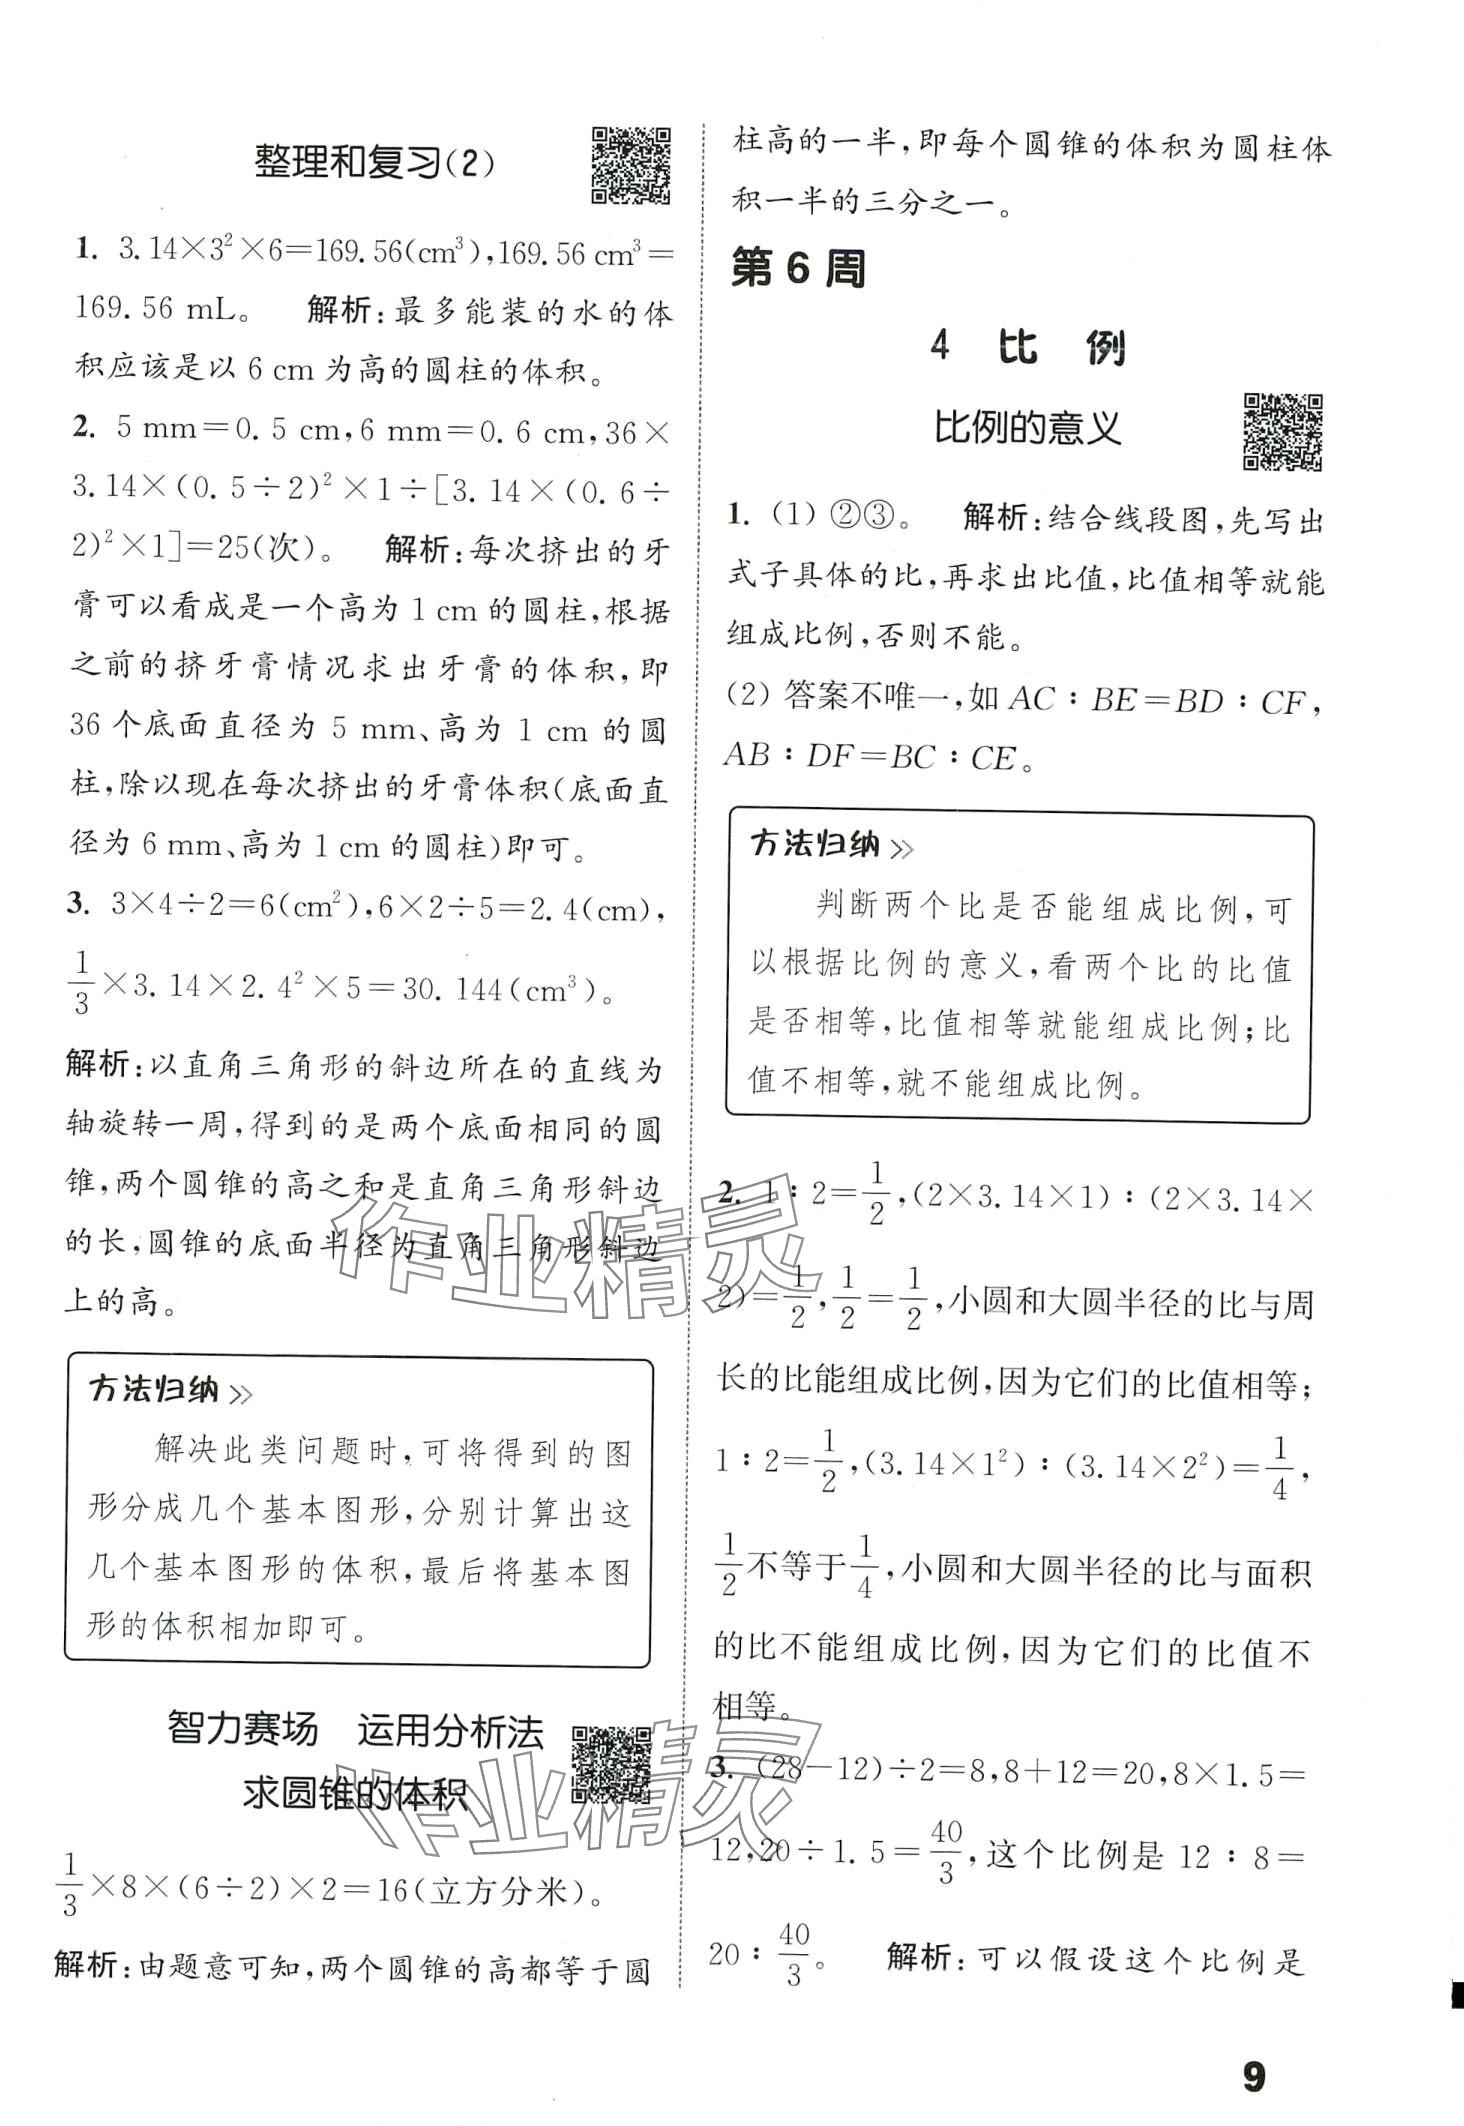 整理和复习(2)
1. 3.14×3²×6=169.56(cm³),169.56 cm³=
169.56 mL。 解析:最多能装的水的体
积应该是以 6 cm 为高的圆柱的体积。
2. 5 mm=0.5 cm,6 mm=0.6 cm,36×
3.14×(0.5÷2)²×1÷[3.14×(0.6÷
2)²×1]=25(次)。 解析:每次挤出的牙
膏可以看成是一个高为 1 cm 的圆柱,根据
之前的挤牙膏情况求出牙膏的体积,即
36 个底面直径为 5 mm、高为 1 cm 的圆
柱,除以现在每次挤出的牙膏体积(底面直
径为 6 mm、高为 1 cm 的圆柱)即可。
3. 3×4÷2=6(cm²),6×2÷5=2.4(cm),
1/3×3.14×2.4²×5=30.144(cm³)。
解析:以直角三角形的斜边所在的直线为
轴旋转一周,得到的是两个底面相同的圆
锥,两个圆锥的高之和是直角三角形斜边
的长,圆锥的底面半径为直角三角形斜边
上的高。
方法归纳
解决此类问题时,可将得到的图
形分成几个基本图形,分别计算出这
几个基本图形的体积,最后将基本图
形的体积相加即可。
智力赛场 运用分析法
求圆锥的体积
1/3×8×(6÷2)×2=16(立方分米)。
解析:由题意可知,两个圆锥的高都等于圆
柱高的一半,即每个圆锥的体积为圆柱体
积一半的三分之一。
第 6 周
4 比 例
比例的意义
1. (1) ②③。 解析:结合线段图,先写出
式子具体的比,再求出比值,比值相等就能
组成比例,否则不能。
(2) 答案不唯一,如 AC∶BE=BD∶CF,
AB∶DF=BC∶CE。
方法归纳
判断两个比是否能组成比例,可
以根据比例的意义,看两个比的比值
是否相等,比值相等就能组成比例;比
值不相等,就不能组成比例。
2. 1∶2=1/2,(2×3.14×1)∶(2×3.14×
2)=1/2,1/2=1/2,小圆和大圆半径的比与周
长的比能组成比例,因为它们的比值相等;
1∶2=1/2,(3.14×1²)∶(3.14×2²)=1/4,
1/2不等于1/4,小圆和大圆半径的比与面积
的比不能组成比例,因为它们的比值不
相等。
3. (28-12)÷2=8,8+12=20,8×1.5=
12,20÷1.5=40/3,这个比例是 12∶8=
20∶40/3。 解析:可以假设这个比例是
作业精灵
作业精灵
9